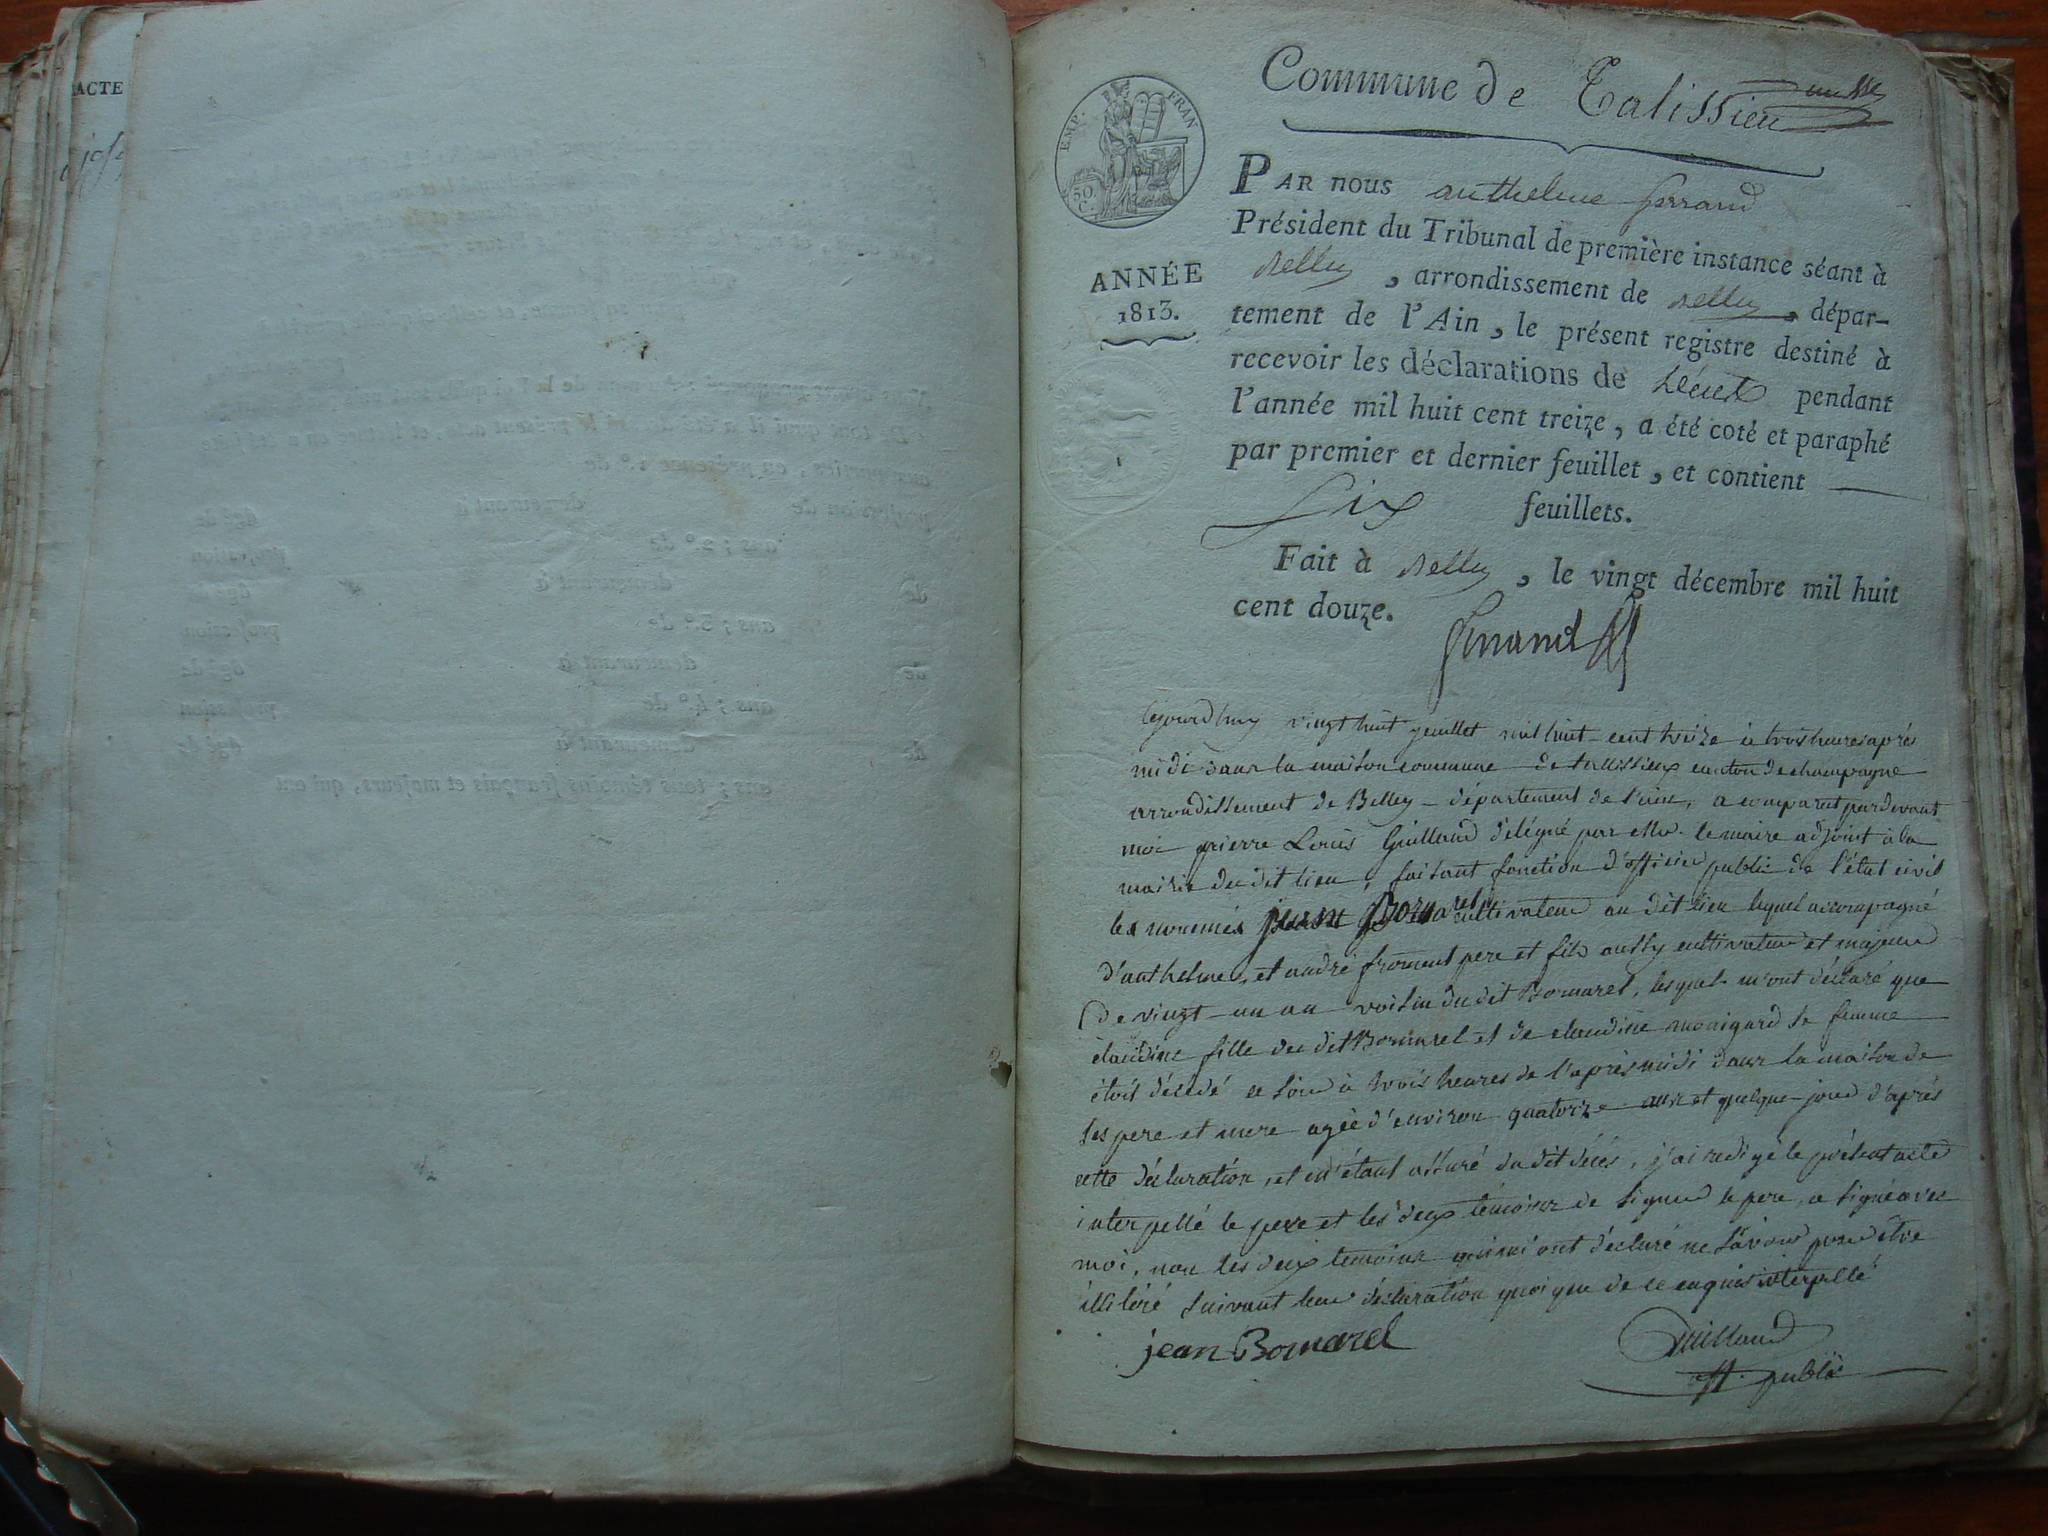 ACTE
Commune de Talissieu
EMP. FRAN
50 C.
ANNÉE
1813.
PAR nous anthelme ferrand
Président du Tribunal de première instance séant à
Belley, arrondissement de Belley, dépar-
tement de l'Ain, le présent registre destiné à
recevoir les déclarations de Décés pendant
l'année mil huit cent treize, a été coté et paraphé
par premier et dernier feuillet, et contient
Six feuillets.
Fait à Belley, le vingt décembre mil huit
cent douze.
ferrand
vingt huit mil huit cent treize à trois heures après
midi dans la maison commune de canton de champagne
arrondissement de Belley département de l'ain, a comparut pardevant
moi pierre Louis Guillaud délégué par le maire adjoint à la
mairie du dit lieu, faisant fonction d'officier public de l'état civil
les nommés jean Bornarel cultivateur au dit lieu lequel accompagné
d'anthelme et andré froment pere et fils aussy cultivateur et majeur
De vingt un an voisin du dit Bornarel, lesquels m'ont déclaré que
claudine fille du dit Bornarel et de claudine sa femme
étoit décedé ce à trois heures de l'après midi dans la maison de
ses pere et mere agée d'environ quatorze ans et quelque jour d'après
cette déclaration, et m'étant assuré du dit décés, j'ai redigé le présent acte
interpellé le pere et les deux témoins de signer le pere a signé avec
moi, non les deux temoins qui m'ont déclaré ne savoir pour être
illiteré suivant leur déclaration quoique de ce enquis interpellé
jean Bornarel
Guillaud
off. public